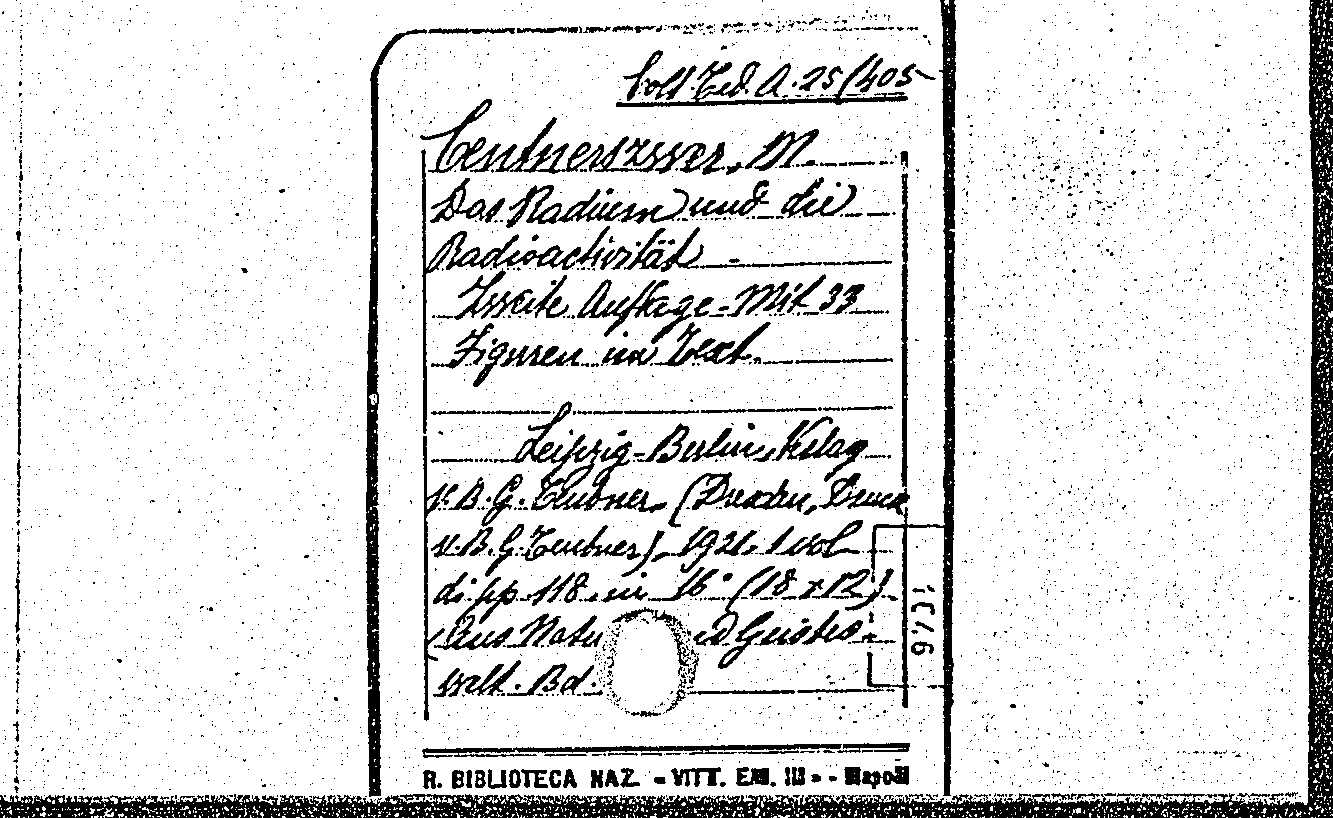 Coll. Ted. A. 25/405
Centnerszwer, M.
Das Radium und die
Radioactivität -
Zweite Auflage - Mit 33
Figuren im Text.
Leipzig - Berlin, Verlag
v. B. G. Teubner, (Dresden, Druck
v. B. G. Teubner), 1921, 1 vol
di pp. 118. in 16° (18 x 12).
(Aus Natu d Geistes:
welt. Bd.
R. BIBLIOTECA NAZ. - VITT. EM. III - - Napoli